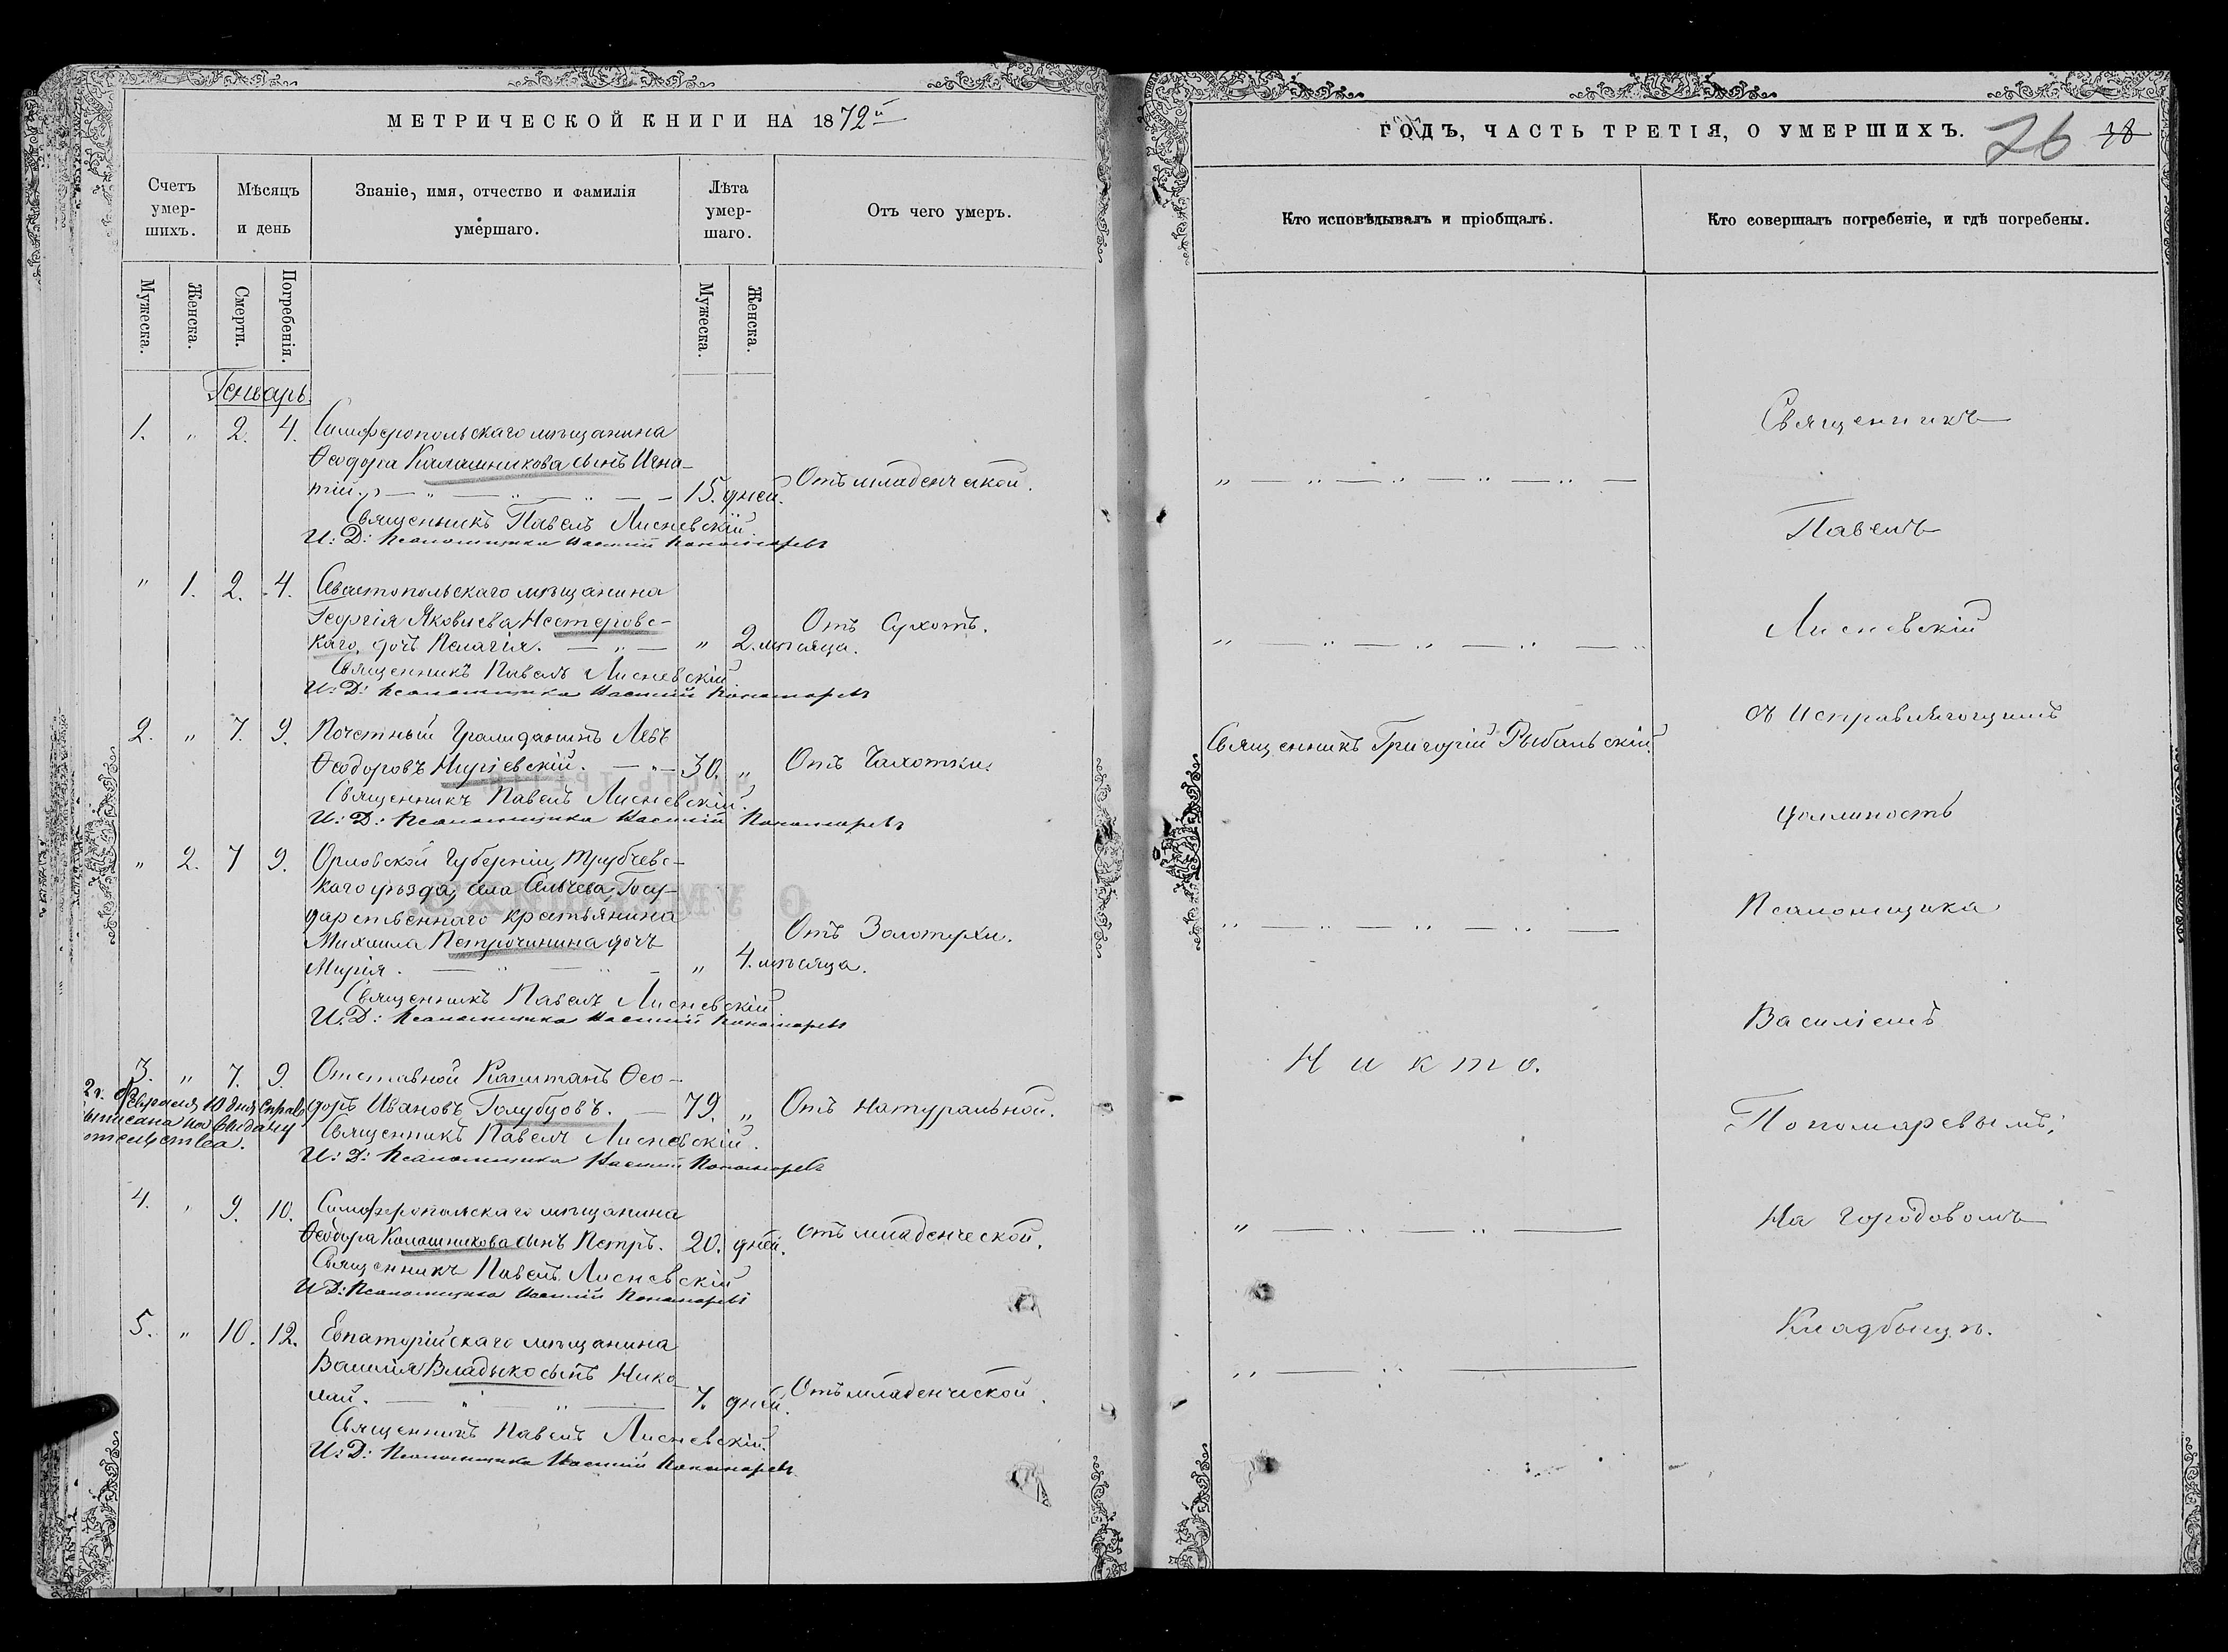 МЕТРИЧЕСКОЙ КНИГИ НА 1872й
Счетъ умер-шихъ.
Мѣсяцъ и день
Званіе, имя, отчество и фамилія умершаго.
Лѣта умер-шаго.
Отъ чего умеръ.
Мужеска.
Женска.
Смерти.
Погребенія.
Мужеска.
Женска.
Генварь
1. " 2. 4. Симферопольскаго мѣщанина
Ѳеодора Калашникова сынъ Игна-
тій. 15. дней. Отъ младенческой.
Священникъ Павелъ Лисневскій
И: Д: Псаломщика Василій Пономаревъ
" 1. 2. 4. Севастопольскаго мѣщанина
Георгія Яковлева Нестеровс-
каго, дочь Пелагія. " 2. мѣсяца. Отъ Сухотъ.
Священникъ Павелъ Лисневскій
И: Д: Псаломщика Василій Пономаревъ
2. " 7. 9. Почетный Гражданинъ Левъ
Ѳеодоровъ 30. " Отъ Чахотки.
Священникъ Павелъ Лисневскій.
И: Д: Псаломщика Василій Пономаревъ
" 2. 7 9. Орловской Губерніи, Трубчевс-
каго уѣзда, села Госу-
дарственнаго крестьянина
Михаила Петрочинина дочь
Марія. " 4. мѣсяца. Отъ Золотухи.
Священникъ Павелъ Лисневскій
И. Д: Псаломщика Василій Пономаревъ
3. " 7. 9. Отставной Капитанъ Ѳео-
доръ Ивановъ Голубцовъ. 79. " Отъ Натуральной.
Священникъ Павелъ Лисневскій.
И: Д: Псаломщика Василій Пономаревъ
Февраля 10 дня
4. " 9. 10. Симферопольскаго мѣщанина
Ѳеодора Калашникова сынъ Петръ. 20. дней. Отъ младенческой.
Священникъ Павелъ Лисневскій
И Д: Псаломщика Василій Пономаревъ
5. " 10. 12. Евпаторійскаго мѣщанина
Василія Владыко сынъ Нико-
лай. 7. дней. Отъ младенческой.
Священникъ Павелъ Лисневскій.
И: Д: Псаломщика Василій Пономаревъ
ГОДЪ, ЧАСТЬ ТРЕТІЯ, О УМЕРШИХЪ.
26 38
Кто исповѣдывалъ и пріобщалъ.
Кто совершалъ погребеніе, и гдѣ погребены.
Священникъ Григорій Рыбальскій.
Никто.
Священникъ
Павелъ
Лисневскій
съ Исправляющимъ
должность
Псаломщика
Василіемъ
Пономаревымъ;
На Городовомъ
Кладбищѣ.